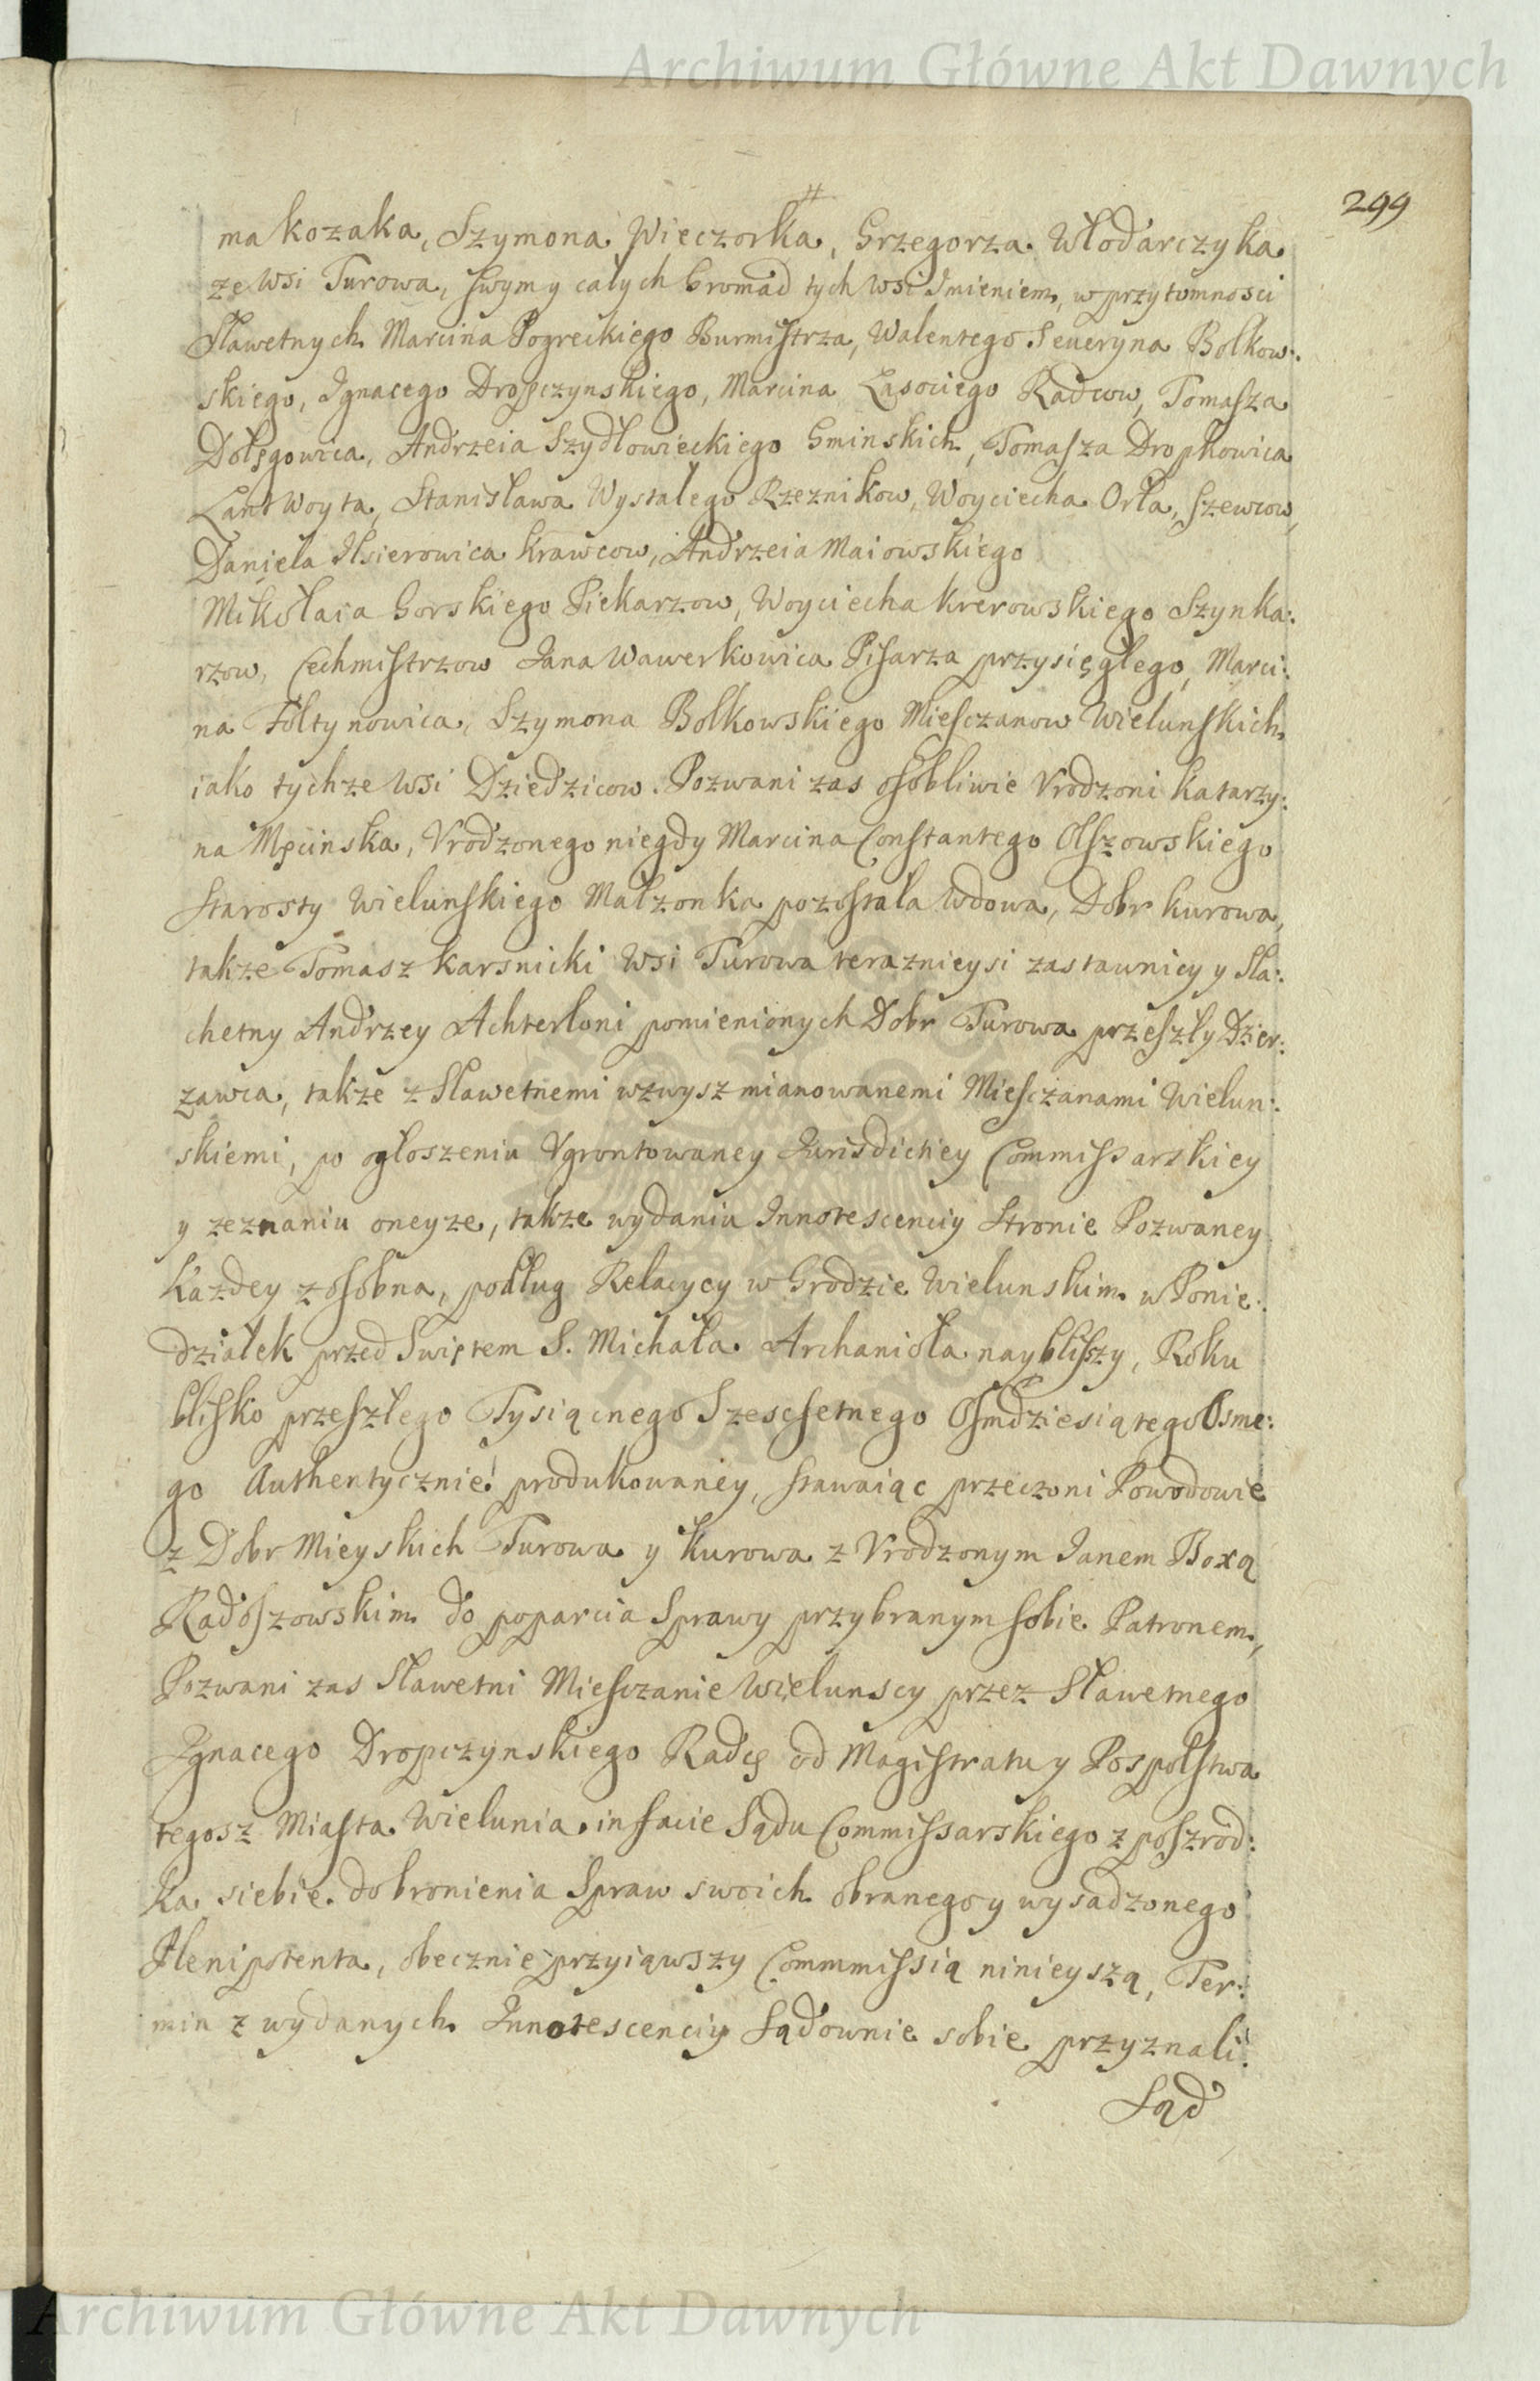 Archiwum Główne Akt Dawnych
299
ma kozaka, Szymona Wieczorka, Grzegorza Włodarczyka
ze wsi Turowa, swym y całych Gromad tych wsi Imieniem, w przytomnosci
Sławetnych Marcina Pogreckiego Burmistrza, Walentego Seueryna Bolkow:
skiego, Ignacego Dropczynskiego, Marcina Lasociego Radcow, Tomasza
Dołęgowica, Andrzeia Szydłowieckiego Gminskich, Tomasza Dropkowica
Lantwoyta, Stanisława Wystałego Rzeznikow, Woyciecha Orła, szewcow,
Daniela Ilsierowica krawcow, Andrzeia Maiowskiego
Mikołaia Gorskiego Piekarzow, Woyciecha krerowskiego Szynka:
rzow, Cechmistrzow Jana Wawerkowica Pisarza przysięgłego, Marci:
na Foltynowica, Szymona Bolkowskiego Miesczanow Wielunskich,
iako tychze wsi Dziedzicow. Pozwani zas osobliwie Vrodzoni katarzy:
na Męcinska, Vrodzonego niegdy Marcina Constantego Olszowskiego
Starosty Wielunskiego Małzonka pozostała wdowa, Dobr kurowa,
takze Tomasz karsnicki wsi Turowa teraznieysi zastawnicy y Sla:
chetny Andrzey Achterloni pomienionych Dobr Turowa przeszły Dzier:
zawca, takze z Sławetnemi wzwysz mianowanemi Miesczanami Wielun:
skiemi, po ogłoszeniu Vgrontowaney Jurisdictiey Commissarskiey
y zeznaniu oneyze, takze wydaniu Innotescenciy Stronie Pozwaney
kazdey zosobna, podług Relacycy w Grodzie Wielunskim w Ponie:
działek przed Swiętem S. Michała Archanioła nayblizszy, Roku
blisko przeszłego Tysiącnego Szescsetnego Osmdziesiątego Osme:
go Authentycznie produkowaney, stawaiąc przeczoni Powodowie
z Dobr Mieyskich Turowa y kurowa z Vrodzonym Janem Boxą
Radoszowskim do poparcia Sprawy przybranym sobie Patronem,
Pozwani zas Sławetni Miesczanie Wielunscy przez Sławetnego
Ignacego Dropczynskiego Radcę od Magistratu y Pospolstwa
tegosz Miasta Wielunia in facie Sądu Commissarskiego z poszrod:
ka siebie do bronienia Spraw swoich obranego y wysadzonego
Plenipotenta, obecznie przyiąwszy Commmissią ninieyszą, Ter:
min z wydanych Innotescenciy Sądownie sobie przyznali.
Sąd
Archiwum Główne Akt Dawnych